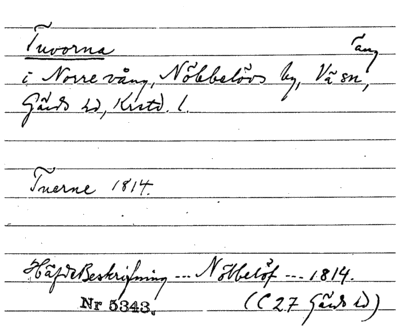 Tuvorna Tång
i Norre vång, Nöbbelövs by, Vä sn,
Gärds hd, Krstd. l.
Tuerne 1814.
HäfdeBeskrifning --- Nöbbelöf --- 1814.
Nr 5343. (C 27 Gärds hd)